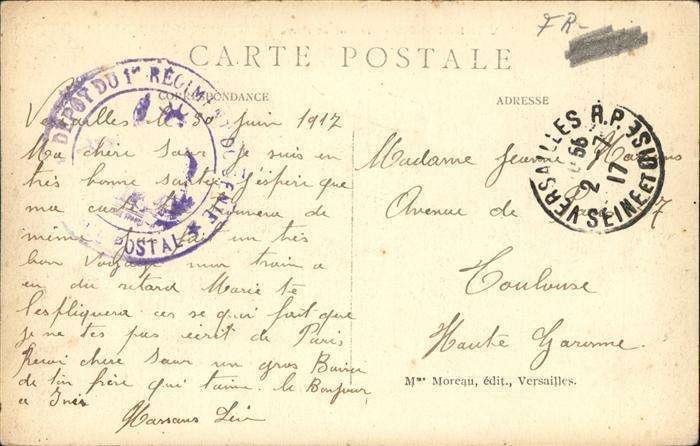 FR-
CARTE POSTALE
CORRESPONDANCE
ADRESSE
DÉPÔT DU 1er RÉGIMENT DU GÉNIE
POSTAL
VERSAILLES R.P.
2 7 17
SEINE ET OISE
Versailles le 30 Juin 1917
Ma chère Sœur Je suis en
très bonne santée J'éspère que
ma carte te trouvera de
même J'ai un très
bon Voyage mon train a
eu du retard Marie te
l'espliquera ces se qui fait que
je ne tes pas écrit de Paris
Recoi chère Sœur un gros Baiser
de ton frère qui t'aime. le Bonjour
a Inès
Marsans
Madame Jeanne Marsans
Avenue de 7
Toulouse
Haute Garonne.
Mme Moreau, édit., Versailles.